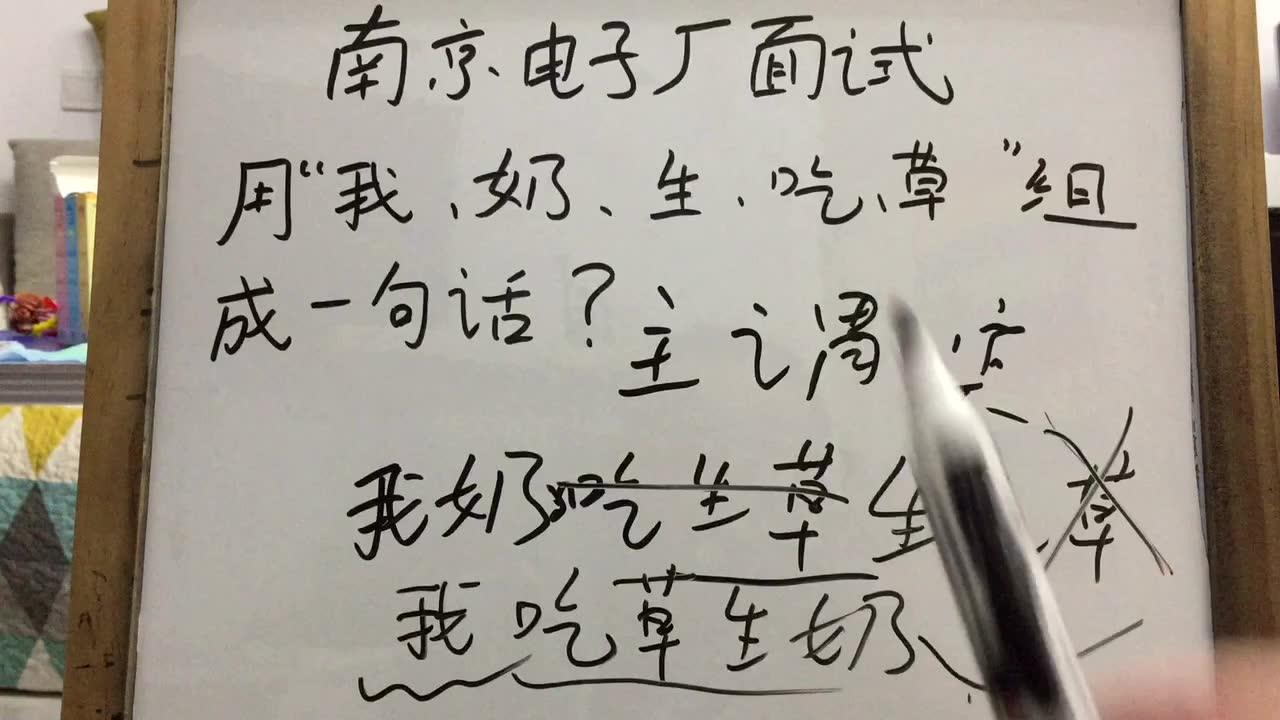 南京电子厂面试
用“我、奶、生、吃、草”组
成一句话？
主之谓
我奶吃生草 生 草
我吃草生奶